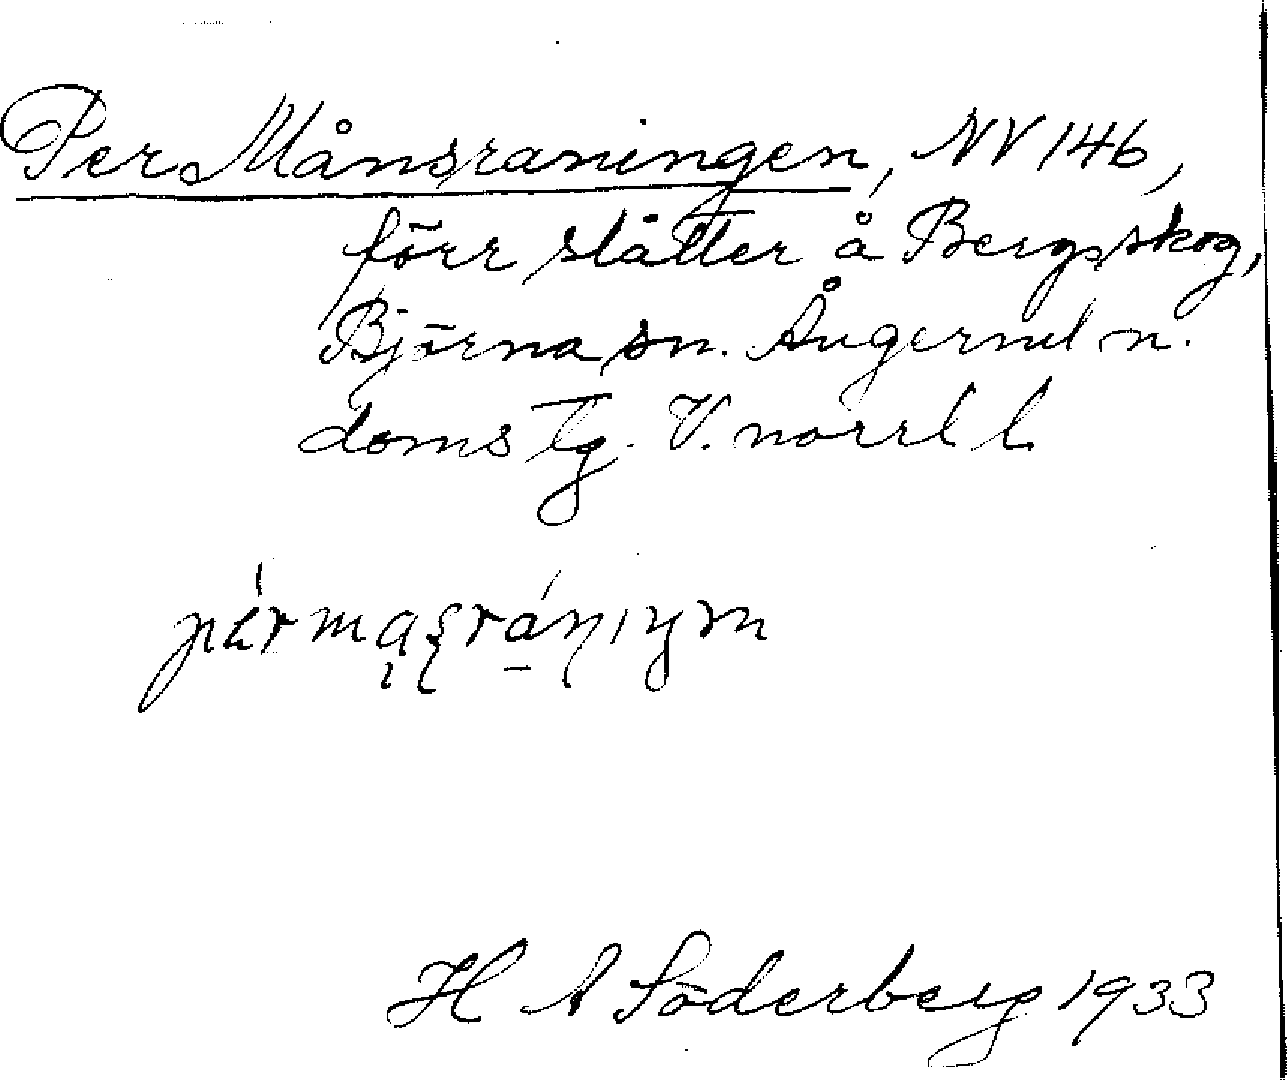 Per Månsraningen, NV 146,
förr slåtter å Bergsskog,
Björna sn. Ångerml n.
doms tg. V. norrl l.
H A Söderberg 1933